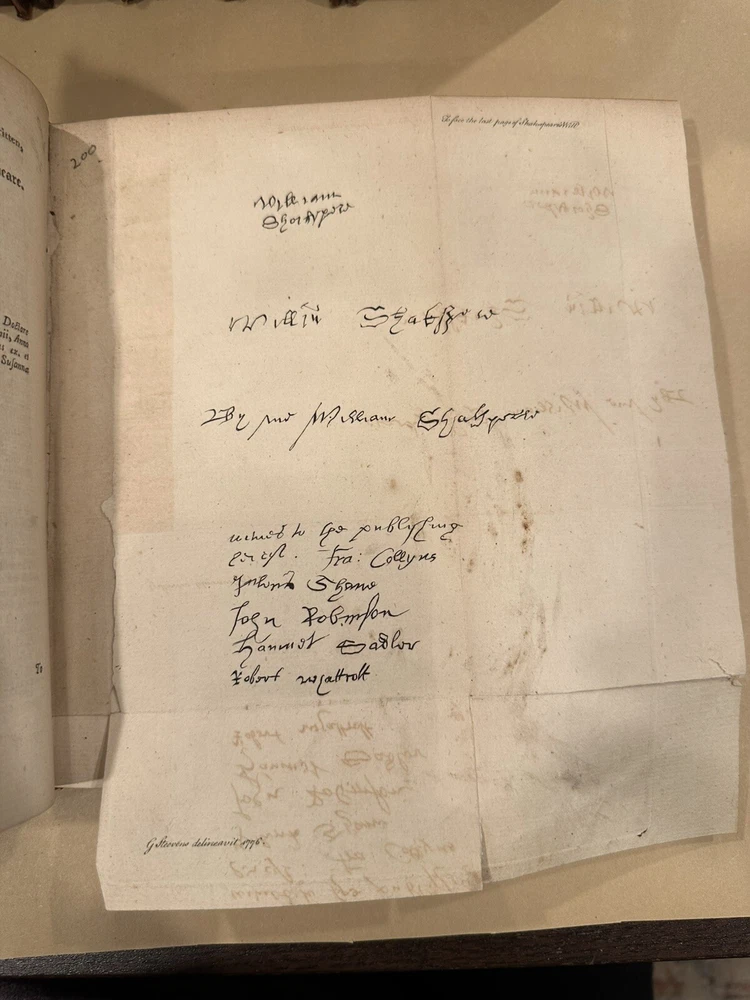 200
To face the last page of Shakspeare's Will.
William
Shakspere
Willm̃ Shakspere
By me William Shakspeare
witnes to the publishing
hereof. Fra: Collyns
Juliust Shawe
John Robinson
Hamnet Sadler
Robert Whattcott
G Steevens delineavit 1776.
itten,
eare.
Declare
Anna
ex. et
Susanna
To